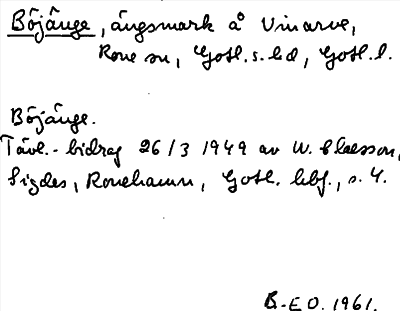 Böjänge, ängsmark å Vinarve,
Rone sn, Gotl. s. hd, Gotl. l.
Böjänge.
Tävl.-bidrag 26/3 1949 av W. Claesson,
Sigdes, Ronehamn, Gotl. hbf., s. 4.
B.-E O. 1961.